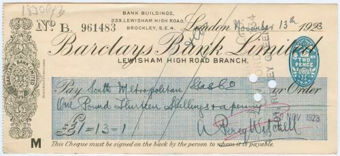 BANK BUILDINGS,
233, LEWISHAM HIGH ROAD,
BROCKLEY, S.E.4.
No. B. 961483 London November 13th 1923
Barclays Bank Limited
LEWISHAM HIGH ROAD BRANCH.
Pay South Metropolitan Gas Co or Order
One Pound Thirteen Shillings & a penny
£1=13=1
A Percy Mitchell
M This Cheque must be signed on the back by the person to whom it is payable.
TWO PENCE
1923